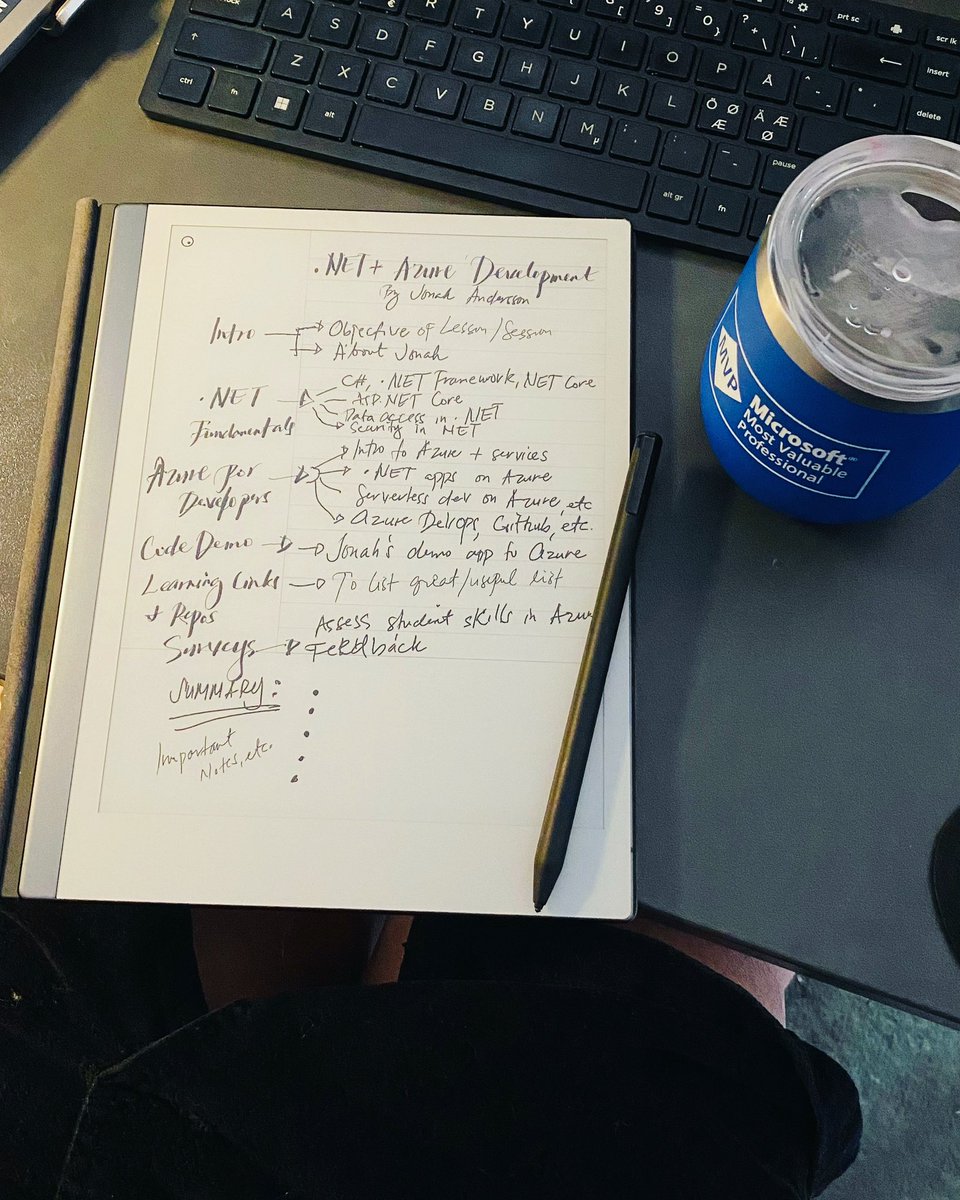 A S D F G H J K L Ö Ø Ä Æ
R T Y U I O P Å
prt sc
scr lk
insert
delete
pause
Z X C V B N M µ
ctrl fn alt alt gr fn
.NET + Azure Development
By Jonah Andersson
Intro
Objective of Lesson/Session
About Jonah
.NET
Fundamentals
C#, .NET Framework, NET Core
ASP.NET Core
Data access in .NET
Security in NET
Azure for
Developers
Intro to Azure + services
.NET apps on Azure
Serverless dev on Azure, etc
Azure DevOps, GitHub, etc.
Code Demo
Jonah's demo app to Azure
Learning Links
+ Repos
To list great/useful list
Surveys
Assess student skills in Azure
Feedback
SUMMARY:
Important
Notes, etc.
MVP
Microsoft
Most Valuable
Professional